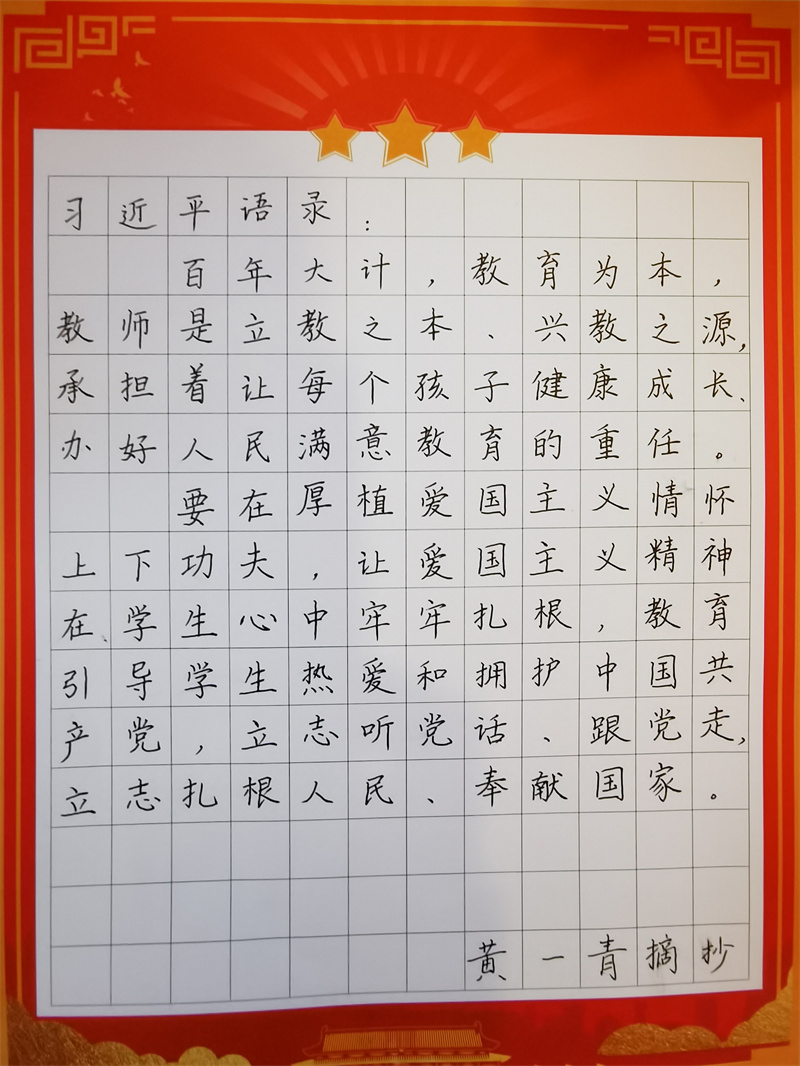 习近平语录：
百年大计，教育为本，
教师是立教之本、兴教之源，
承担着让每个孩子健康成长、
办好人民满意教育的重任。
要在厚植爱国主义情怀
上下功夫，让爱国主义精神
在学生心中牢牢扎根，教育
引导学生热爱和拥护中国共
产党，立志听党话、跟党走，
立志扎根人民、奉献国家。
黄一青摘抄